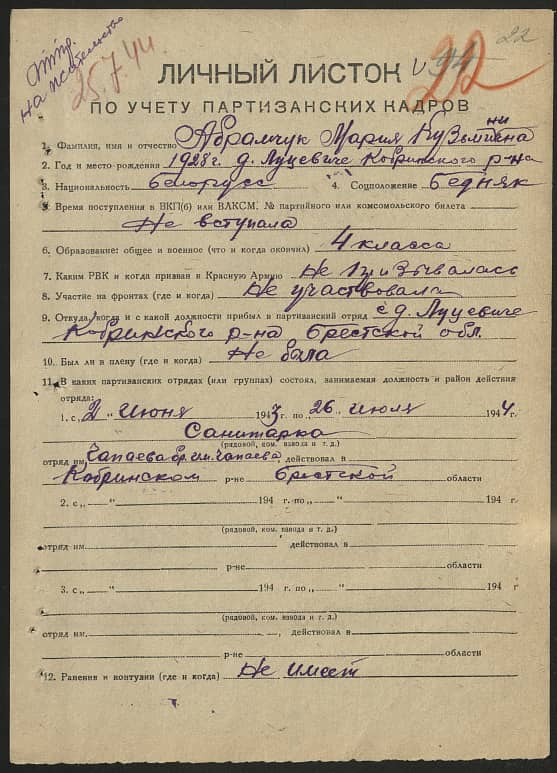 отпр.
на жительство
25.7.44
22
22
ЛИЧНЫЙ ЛИСТОК
ПО УЧЕТУ ПАРТИЗАНСКИХ КАДРОВ
1. Фамилия, имя и отчество Абрамчук Мария Кузьминина
2. Год и место рождения 1928 г. д. Луцевиче Кобринского р-на
3. Национальность белорусс 4. Соцположение бедняк
5. Время поступления в ВКП(б) или ВЛКСМ, № партийного или комсомольского билета
Не вступала
6. Образование: общее и военное (что и когда окончил) 4 класса
7. Каким РВК и когда призван в Красную Армию Не призывалась
8. Участие на фронтах (где и когда) Не участвовала
9. Откуда, когда и с какой должности прибыл в партизанский отряд с д. Луцевиче
Кобринского р-на Брестской обл.
10. Был ли в плену (где и когда) Не была
11. В каких партизанских отрядах (или группах) состоял, занимаемая должность и район действия
отряда:
1. с „2 „ июня 1943 г. по „26 „ июля 1944 г.
Санитарка
(рядовой, ком. взвода и т. д.)
отряд им. Чапаева бр. им. Чапаева, действовал в
Кобринском р-не Брестской области
2. с „ “ 194 г. по „ “ 194 г.
(рядовой, ком. взвода и т. д.)
отряд им. действовал в
р-не области
3. с „ “ 194 г. по „ “ 194 г.
(рядовой, ком. взвода и т. д.)
отряд им. , действовал в
р-не области
12. Ранения и контузии (где и когда) Не имеет